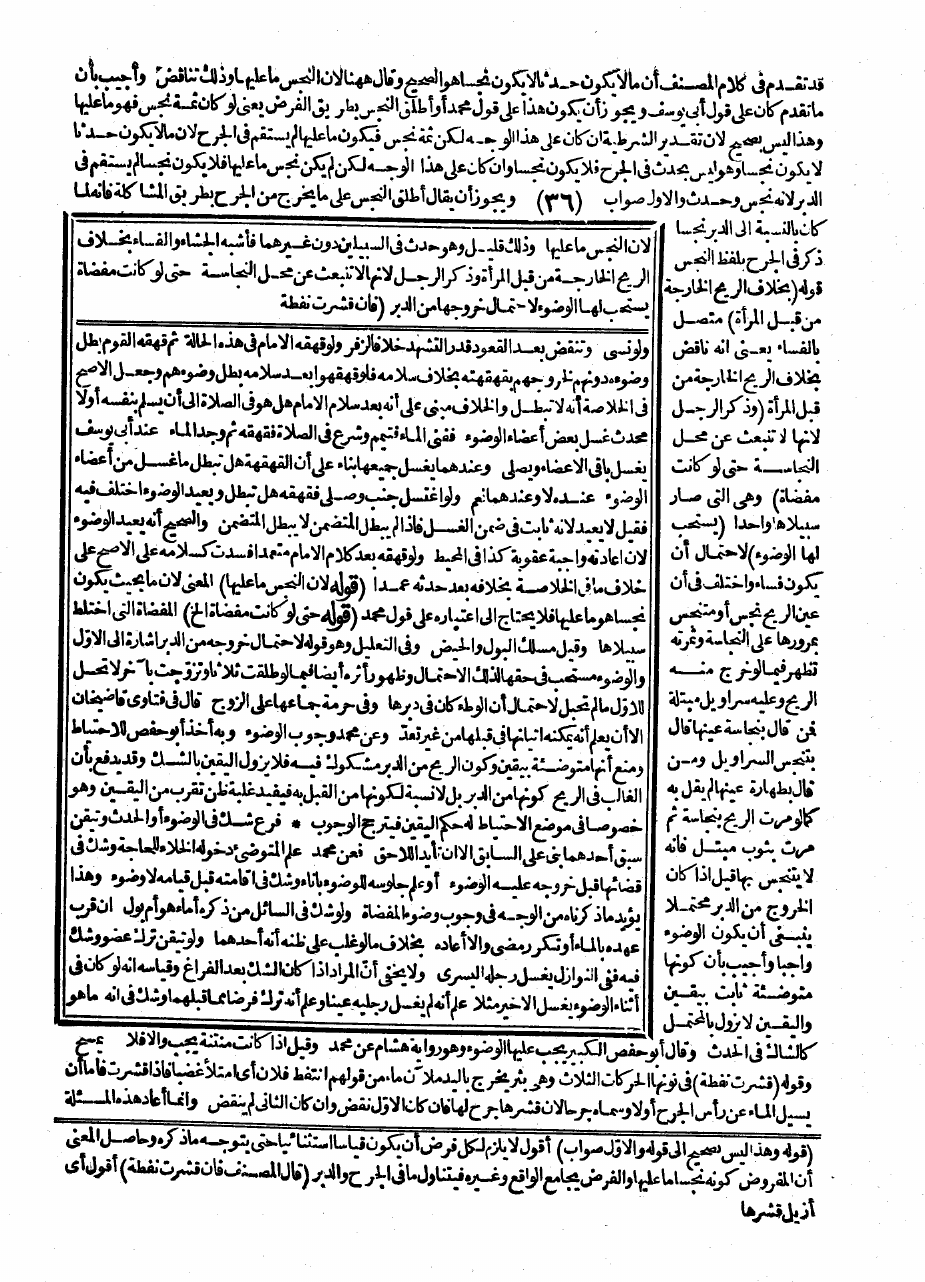 قد تقدم فى كلام المصنف أن مالا يكون حدثا لا يكون نجسا هو الصحيح وقال ههنا لان النجس ما عليها وذلك تناقض وأجيب بأن
ما تقدم كان على قول أبى يوسف ويجوز أن يكون هذا على قول محمد أو أطلق النجس بطريق الفرض يعنى لو كان ثمة نجس فهو ما عليها
وهذا ليس بصحيح لان تقدير الشرطية ان كان على هذا الوجه لكن ثمة نجس فيكون ما عليها لم يستقم فى الجرح لان مالا يكون حدثا
لا يكون نجسا وهو ليس بحدث فى الجرح فلا يكون نجسا وان كان على هذا الوجه لكن لم يكن نجس ما عليها فلا يكون نجسا لم يستقم فى
الدبر لانه نجس وحدث والاول صواب (٣٦) ويجوز أن يقال أطلق النجس على ما يخرج من الجرح بطريق المشاكلة فانه لما
كان بالنسبة الى الدبر نجسا
ذكر فى الجرح بلفظ النجس
قوله (بخلاف الريح الخارجة
من قبل المرأة) متصل
بالفساء يعنى انه ناقض
بخلاف الريح الخارجة من
قبل المرأة (وذكر الرجل
لانها لا تنبعث عن محل
النجاسة حتى لو كانت
مفضاة) وهى التى صار
سبيلاها واحدا (يستحب
لها الوضوء) لاحتمال أن
يكون فساء واختلف فى أن
عين الريح نجس أو متنجس
بمرورها على النجاسة وثمرته
تظهر فيما لو خرج منه
الريح وعليه سراويل مبتلة
فمن قال بنجاسة عينها قال
يتنجس السراويل ومن
قال بطهارة عينها لم يقل به
كما لو مرت الريح بنجاسة ثم
مرت بثوب مبتل فانه
لا يتنجس بها قيل اذا كان
الخروج من الدبر محتملا
ينبغى أن يكون الوضوء
واجبا وأجيب بأن كونها
متوضئة ثابت بيقين
واليقين لا يزول بالمحتمل
لان النجس ما عليها وذلك قليل وهو حدث فى السبيلين دون غيرهما فأشبه الجشاء والفساء بخلاف
الريح الخارجة من قبل المرأة وذكر الرجل لانها لا تنبعث عن محل النجاسة حتى لو كانت مفضاة
يستحب لها الوضوء لاحتمال خروجها من الدبر (فان قشرت نفطة
ولو نسى وتنقض بعد القعود قدر التشهد خلافا لزفر ولو قهقه الامام فى هذه الحالة ثم قهقه القوم بطل
وضوءه دونهم لخروجهم بقهقهته بخلاف سلامه فلو قهقهوا بعد سلامه بطل وضوءهم وجعل الاصح
فى الخلاصة أنه لا تبطل والخلاف مبنى على أنه بعد سلام الامام هل هو فى الصلاة الى أن يسلم بنفسه أولا
محدث غسل بعض أعضاء الوضوء ففنى الماء فتيمم وشرع فى الصلاة فقهقه ثم وجد الماء عند أبى يوسف
يغسل باقى الاعضاء ويصلى وعندهما يغسل جميعها بناء على أن القهقهة هل تبطل ما غسل من أعضاء
الوضوء عنده لا وعندهما نعم ولو اغتسل جنب وصلى فقهقه هل تبطل ويعيد الوضوء اختلف فيه
فقيل لا يعيد لانه ثابت فى ضمن الغسل فاذا لم يبطل المتضمن لا يبطل المتضمن والصحيح أنه يعيد الوضوء
لان اعادته واجبة عقوبة كذا فى المحيط ولو قهقه بعد كلام الامام متعمدا فسدت كسلامه على الاصح على
خلاف ما فى الخلاصة بخلافه بعد حدثه عمدا (قوله لان النجس ما عليها) المعنى لان ما بحيث يكون
نجسا هو ما عليها فلا يحتاج الى اعتباره على قول محمد (قوله حتى لو كانت مفضاة الخ) المفضاة التى اختلط
سبيلاها وقيل مسلك البول والحيض وفى التعليل وهو قوله لاحتمال خروجه من الدبر اشارة الى الاول
والوضوء مستحب فى حقها لذلك الاحتمال وظهور أثره أيضا فيما لو طلقت ثلاثا وتزوجت بآخر لا تحل
للاول ما لم تحبل لاحتمال أن الوطء كان فى دبرها وفى حرمة جماعها على الزوج قال فى فتاوى قاضيخان
الا أن يعلم أنه يمكنه اتيانها فى قبلها من غير تعد وعن محمد وجوب الوضوء وبه أخذ أبو حفص للاحتياط
ومنع أنها متوضئة بيقين وكون الريح من الدبر مشكوك فيه فلا يزول اليقين بالشك وقد يدفع بأن
الغالب فى الريح كونها من الدبر بل لا نسبة لكونها من القبل به فيفيد غلبة ظن تقرب من اليقين وهو
خصوصا فى موضع الاحتياط له حكم اليقين فيترجح الوجوب * فرع شك فى الوضوء أو الحدث وتيقن
سبق أحدهما بنى على السابق الا ان تأيد اللاحق فعن محمد علم المتوضئ دخوله الخلاء للحاجة وشك فى
قضائها قبل خروجه عليه الوضوء أو علم جلوسه للوضوء باناء وشك فى اقامته قبل قيامه لا وضوء وهذا
يؤيد ما ذكرناه من الوجه فى وجوب وضوء المفضاة ولو شك فى السائل من ذكره أماء هو أم بول ان قرب
عهده بالماء أو تكرر مضى والا أعاده بخلاف ما لو غلب على ظنه أنه أحدهما ولو تيقن ترك عضو وشك
فيه ففى النوازل يغسل رجله اليسرى ولا يخفى أن المراد اذا كان الشك بعد الفراغ وقياسه انه لو كان فى
أثناء الوضوء يغسل الاخير مثلا علم أنه لم يغسل رجليه عينا وعلم أنه ترك فرضا مما قبلهما وشك فى انه ما هو
كالشاك فى الحدث وقال أبو حفص الكبير يجب عليها الوضوء وهو رواية هشام عن محمد وقيل اذا كانت منتنة يجب والا فلا يمسح
وقوله (قشرت نفطة) فى نونها الحركات الثلاث وهى بثر يخرج باليد ملآن ماء من قولهم انتفط فلان أى امتلأ غضبا فاذا قشرت فاما أن
يسيل الماء عن رأس الجرح أولا وسماه جرحا لان قشرها جرح لها فان كان الاول نقض وان كان الثانى لم ينقض وانما أعاد هذه المسئلة
(قوله وهذا ليس بصحيح الى قوله والاول صواب) أقول لا يلزم لكل فرض أن يكون قياسا استثنائيا حتى يتوجه ما ذكره وحاصل المعنى
أن المفروض كونه نجسا ما عليها والفرض يجامع الواقع وغيره فيتناول ما فى الجرح والدبر (قال المصنف فان قشرت نفطة) أقول أى
أزيل قشرها